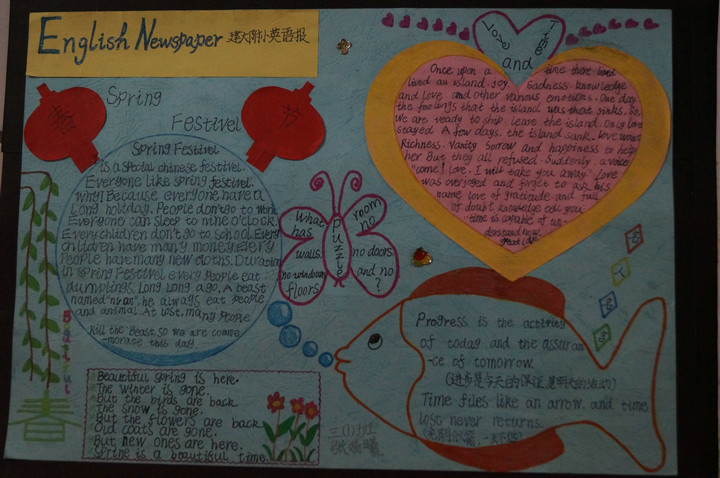 English Newspaper
英语报
Spring
Festivel
春
节
Spring Festivel
is a special chinese festivel.
Everyone like spring festivel.
why? Because everyone have a
long holiday. People don't go to work
Everyone can sleep to nine o'clock.
Every children don't go to school. Every
children have many money. every
People have many new cloths. Duration
in Spring Festivel every People eat
dumplings. Long Long ago. A beast
named "nian". he always eat People
and animal. At last, many People
kill the beast so we are comme
-morace this day
Beautiful
春
Beautiful spring is here.
The winter is gone.
But the birds are back
The snow is gone.
But the flowers are back
Old coats are gone.
But new ones are here.
Spring is a beautiful time.
puzzle
what
has
walls.
no windows
floors
room
no
no doors
and no
?
Love Time
and
Once upon a time there
lived an island. Joy. Sadness. knowledge
and Love and other various emotions. One day
the feelings that the island was that sinks. So,
we are ready to ship leave the island. Only love
stayed. A few days. the island sank. Love want
Richness. Vanity Sorrow and happiness to help
her But they all refused. Suddenly a voice
"come! Love. I will take you away." Love
was overjoyed and forget to ask his
name love of gratitude and full
of dout knowledge tell you
time is capable of un-
derstand how
great Love
Progress is the activity
of today and the assuran
-ce of tomorrow.
(进步是今天的保证,是明天的活动)
Time files like an arrow. and time
lost never returns.
三(1)班